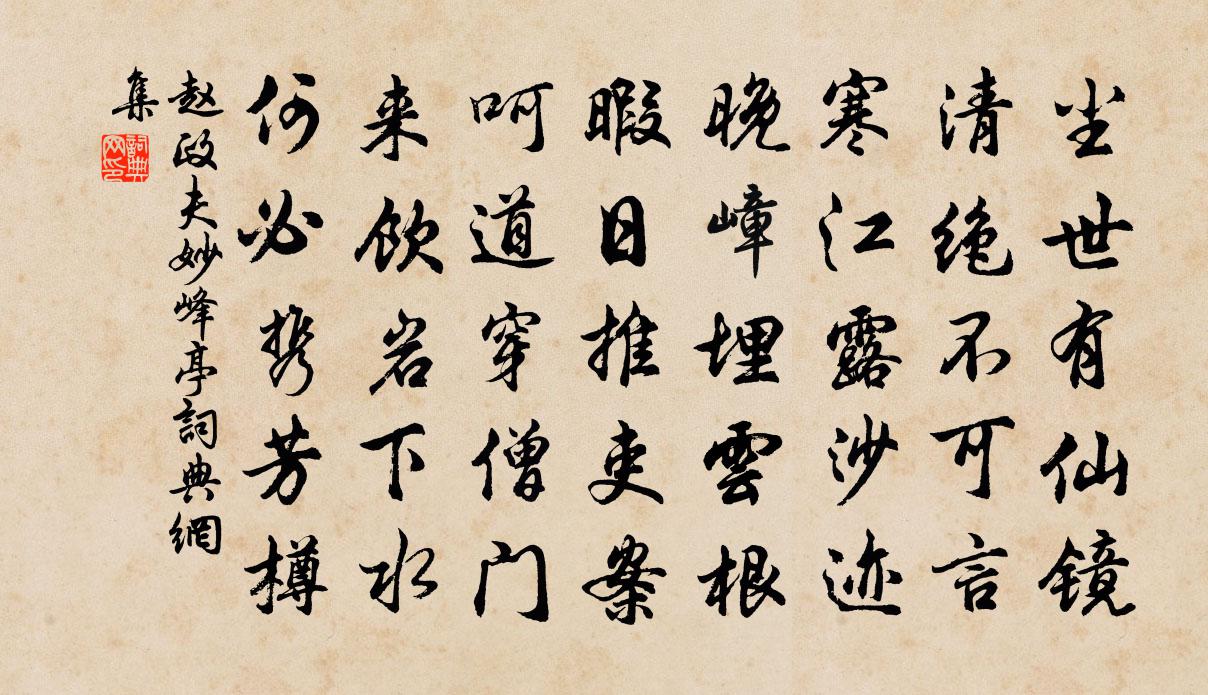 尘世有仙镜
清绝不可言
寒江露沙迹
晚嶂埋雲根
暇日推吏案
呵道穿僧门
来饮岩下水
何必携芳樽
赵政夫妙峰亭詞典網
集
詞典网印